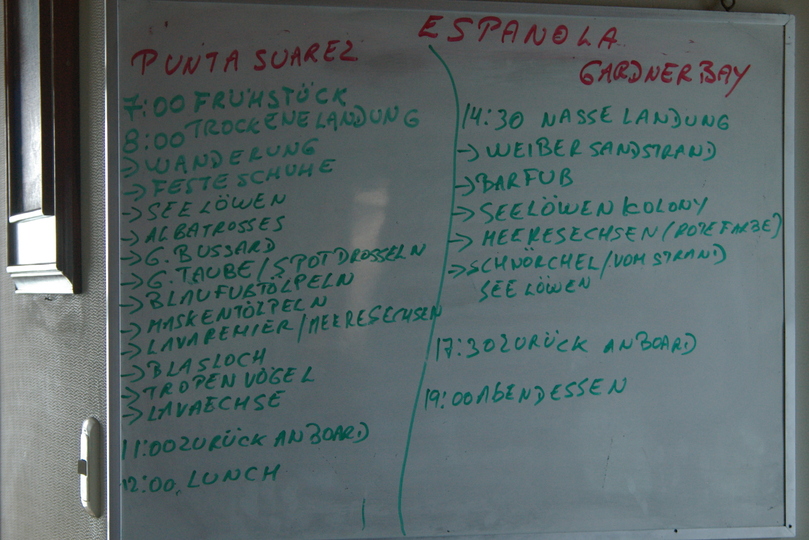 ESPANOLA
PUNTA SUAREZ
7:00 FRÜHSTÜCK
8:00 TROCKENE LANDUNG
→ WANDERUNG
→ FESTE SCHUHE
→ SEELÖWEN
→ ALBATROSSES
→ G. BUSSARD
→ G. TAUBE / SPOTDROSSELN
→ BLAUFUBTÖLPELN
→ MASKENTÖLPELN
→ LAVAREIHER / MEERESECHSEN
→ BLASLOCH
→ TROPENVÖGEL
→ LAVAECHSE
11:00 ZURÜCK AN BOARD
12:00, LUNCH
GARDNER BAY
14:30 NASSE LANDUNG
→ WEIBER SANDSTRAND
→ BARFUB
→ SEELÖWEN KOLONY
→ MEERESECHSEN / (ROTE FARBE)
→ SCHNÖRCHEL / VOM STRAND
SEELÖWEN
17:30 ZURÜCK AN BOARD
19:00 ABENDESSEN